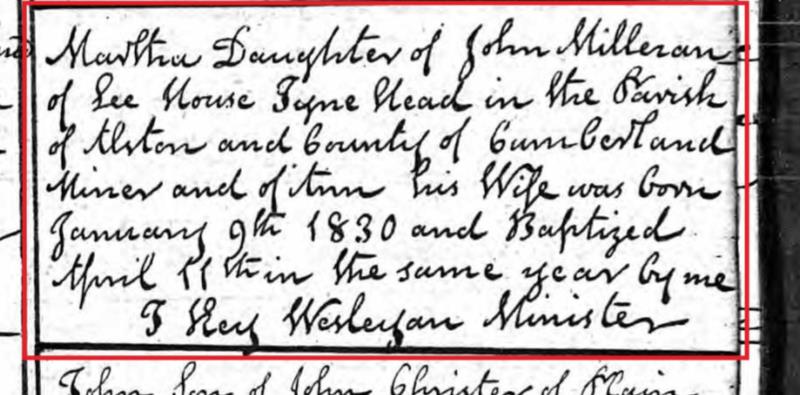 Martha Daughter of John Milleran
of Lee House Tyne Head in the Parish
of Alston and County of Cumberland
Miner and of Ann his Wife was born
January 9th 1830 and Baptized
April 11th in the same year by me
T Key Wesleyan Minister
John Son of John Christer of Plain